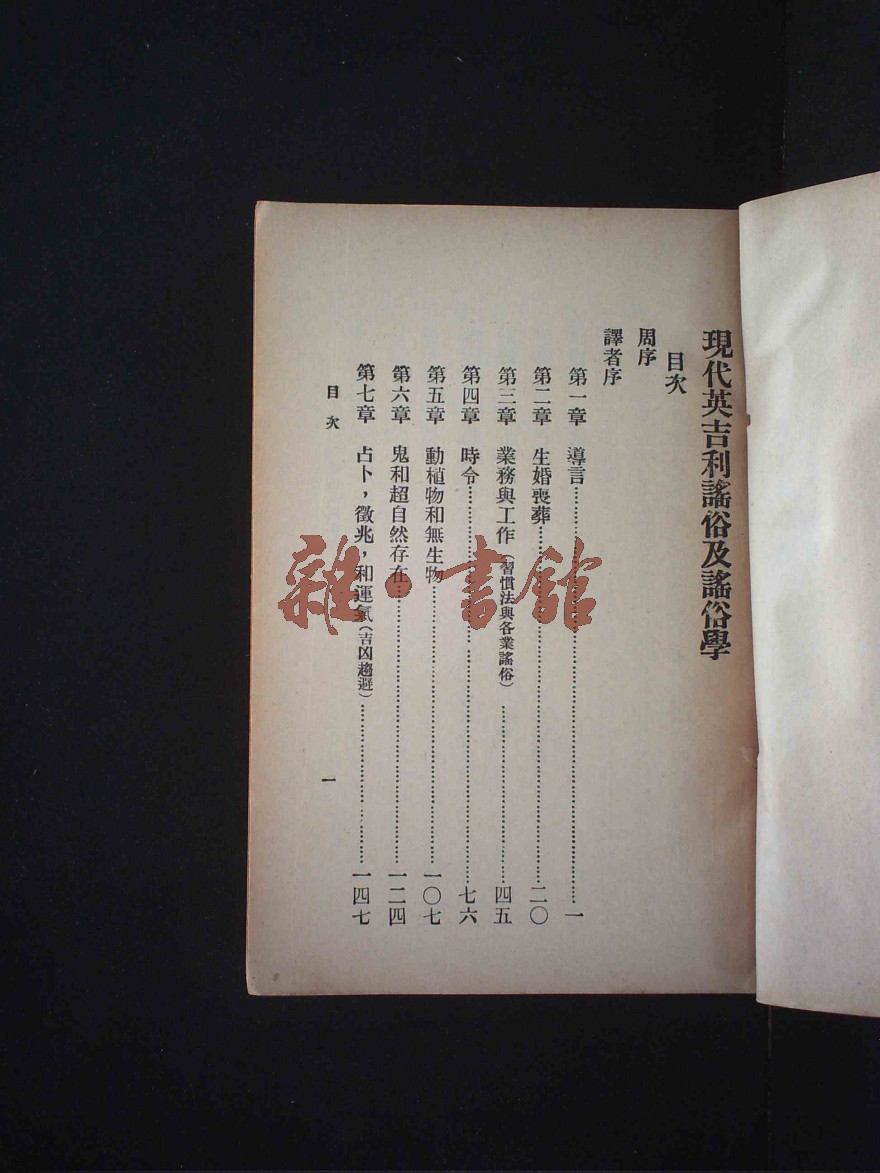 現代英吉利謠俗及謠俗學
目次
周序
譯者序
第一章 導言……一
第二章 生婚喪葬……二〇
第三章 業務與工作(習慣法與各業謠俗)……四五
第四章 時令……七六
第五章 動植物和無生物……一〇七
第六章 鬼和超自然存在……一二四
第七章 占卜,徵兆,和運氣(吉凶趨避)……一四七
目次 一
雜·書館